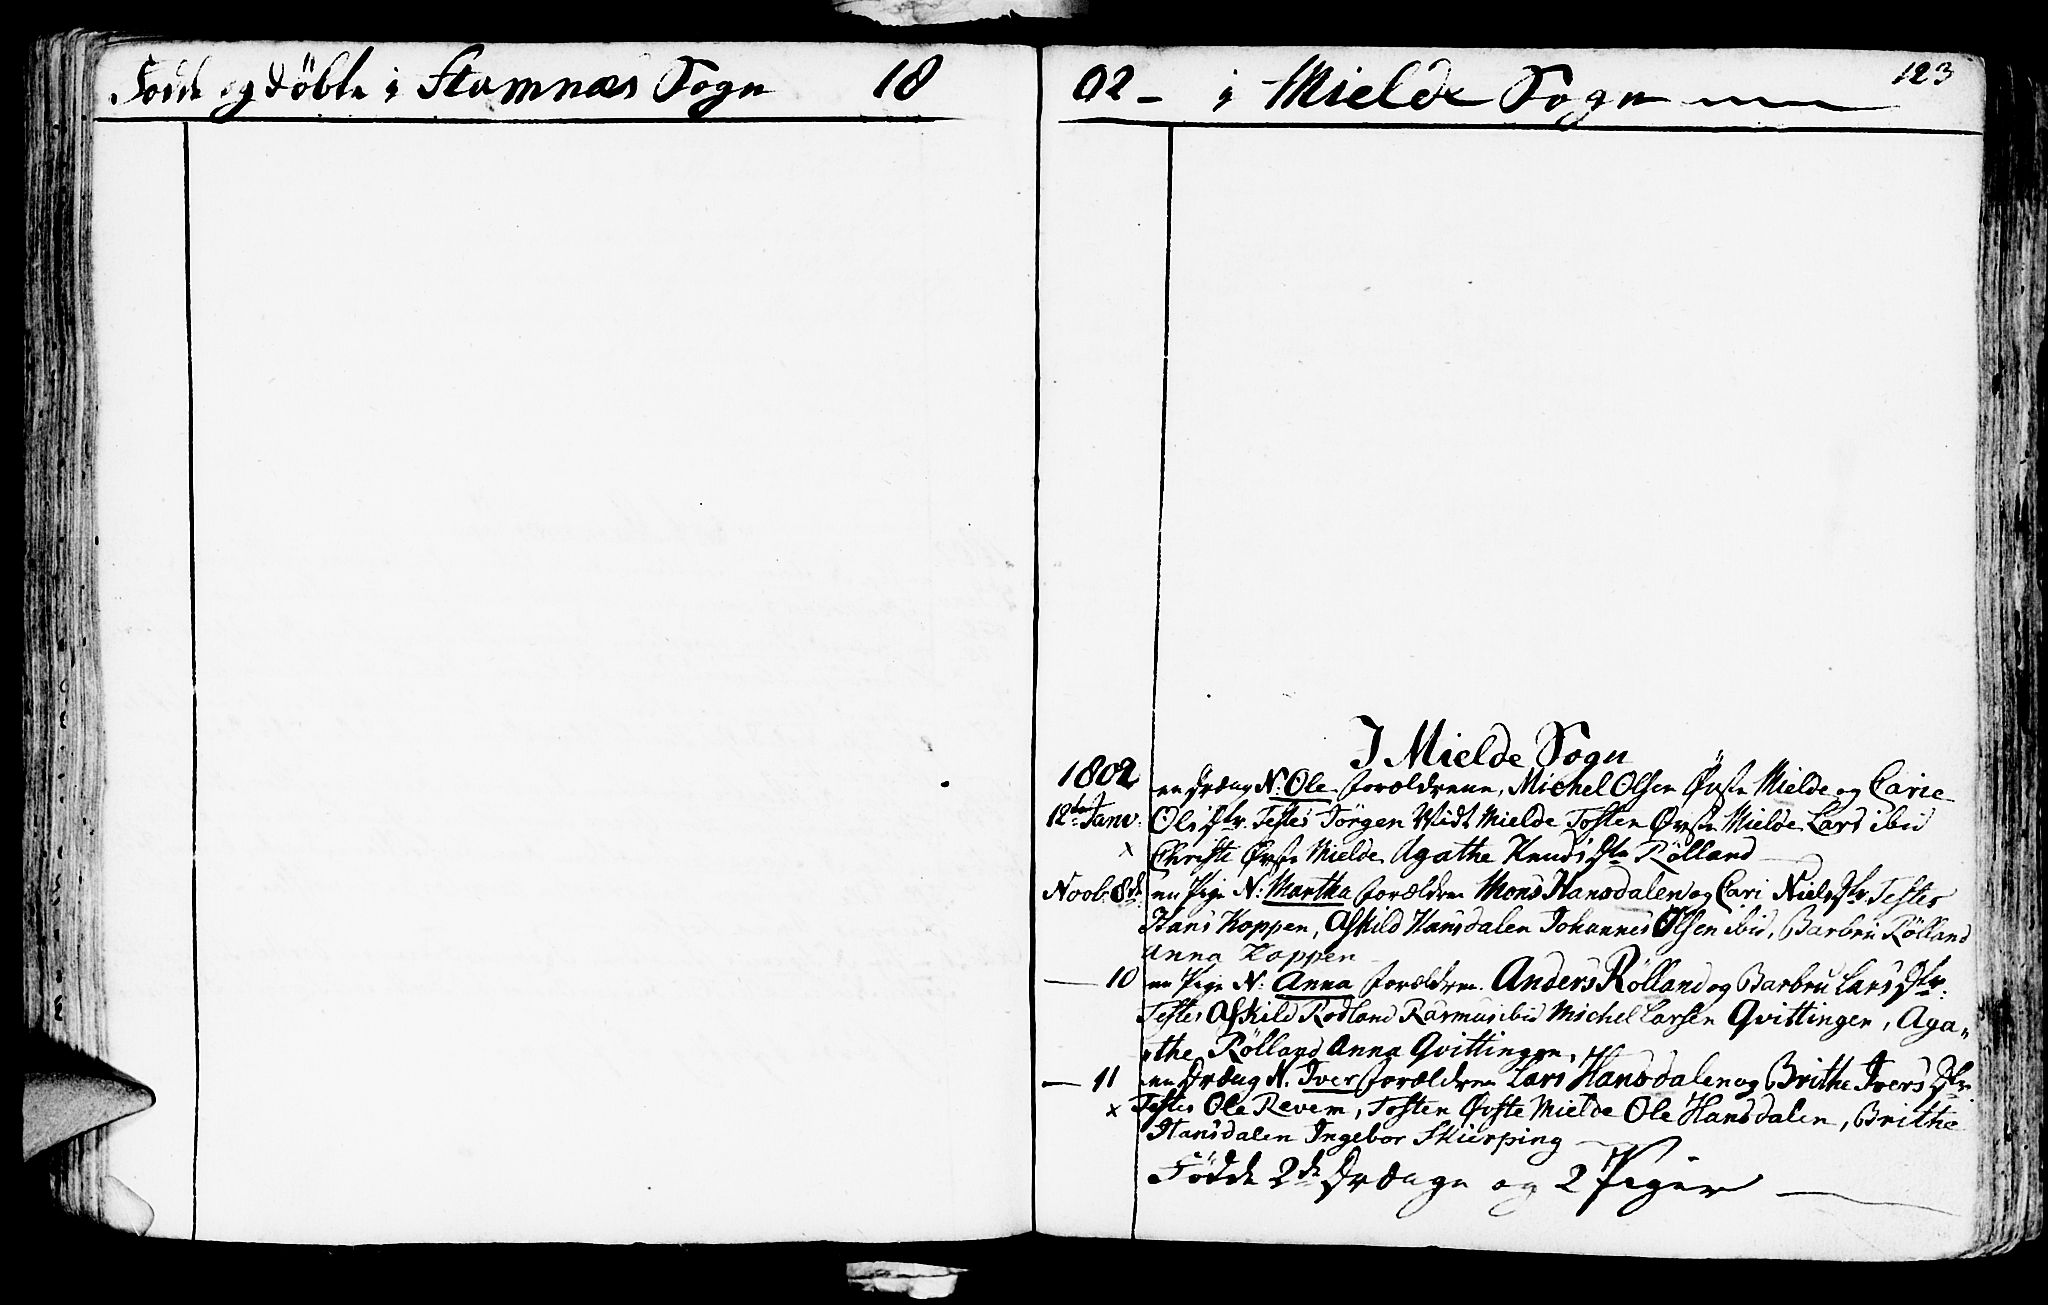 Fødde og døbte i Stamnæs Sogn 18
02 - i Mielde Sogn 123
I Mielde Sogn
1802
en Dræng N: Ole forældrene, Michel Olsen Øvste Mielde og Carie
12te Janv: Olis Dtr. Testes Jörgen Midt Mielde Tosten Øvste Mielde Lars ibid
x Christe Øvste Mielde Agathe Knuds Dtr Rølland
Novb. 8de en Pige N: Martha forældren Mons Hansdalen og Cari Niels Dtr. Testes
Hans Koppen, Askild Hansdalen Johannes Olsen ibid, Barbru Rölland
Anna Koppen
— 10 en Pige N: Anna forældren. Anders Rölland og Barbru Lars Dtr.
Testes Askild Rödland Rasmus ibid Michel Larsen Qvittingen, Aga„
the Rølland Anna Qvittingen,
— 11 en Dræng N. Iver forældren Lars Hansdalen og Brithe Ivers Dtr.
x Testes Ole Revem, Tosten Øvste Mielde Ole Hansdalen, Brithe
Hansdalen Ingebor Skiurping
Födde 2de Drænge og 2 Piger